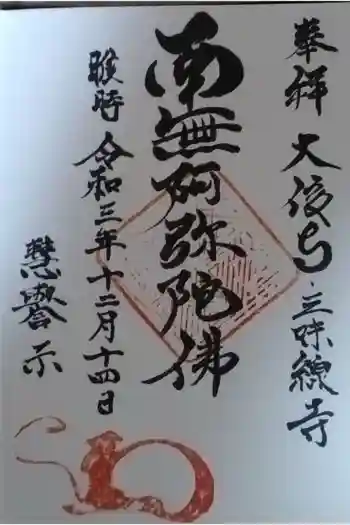 奉拝 大信寺・三味線寺
南無阿弥陀佛
時 令和三年十二月十四日
誉 示